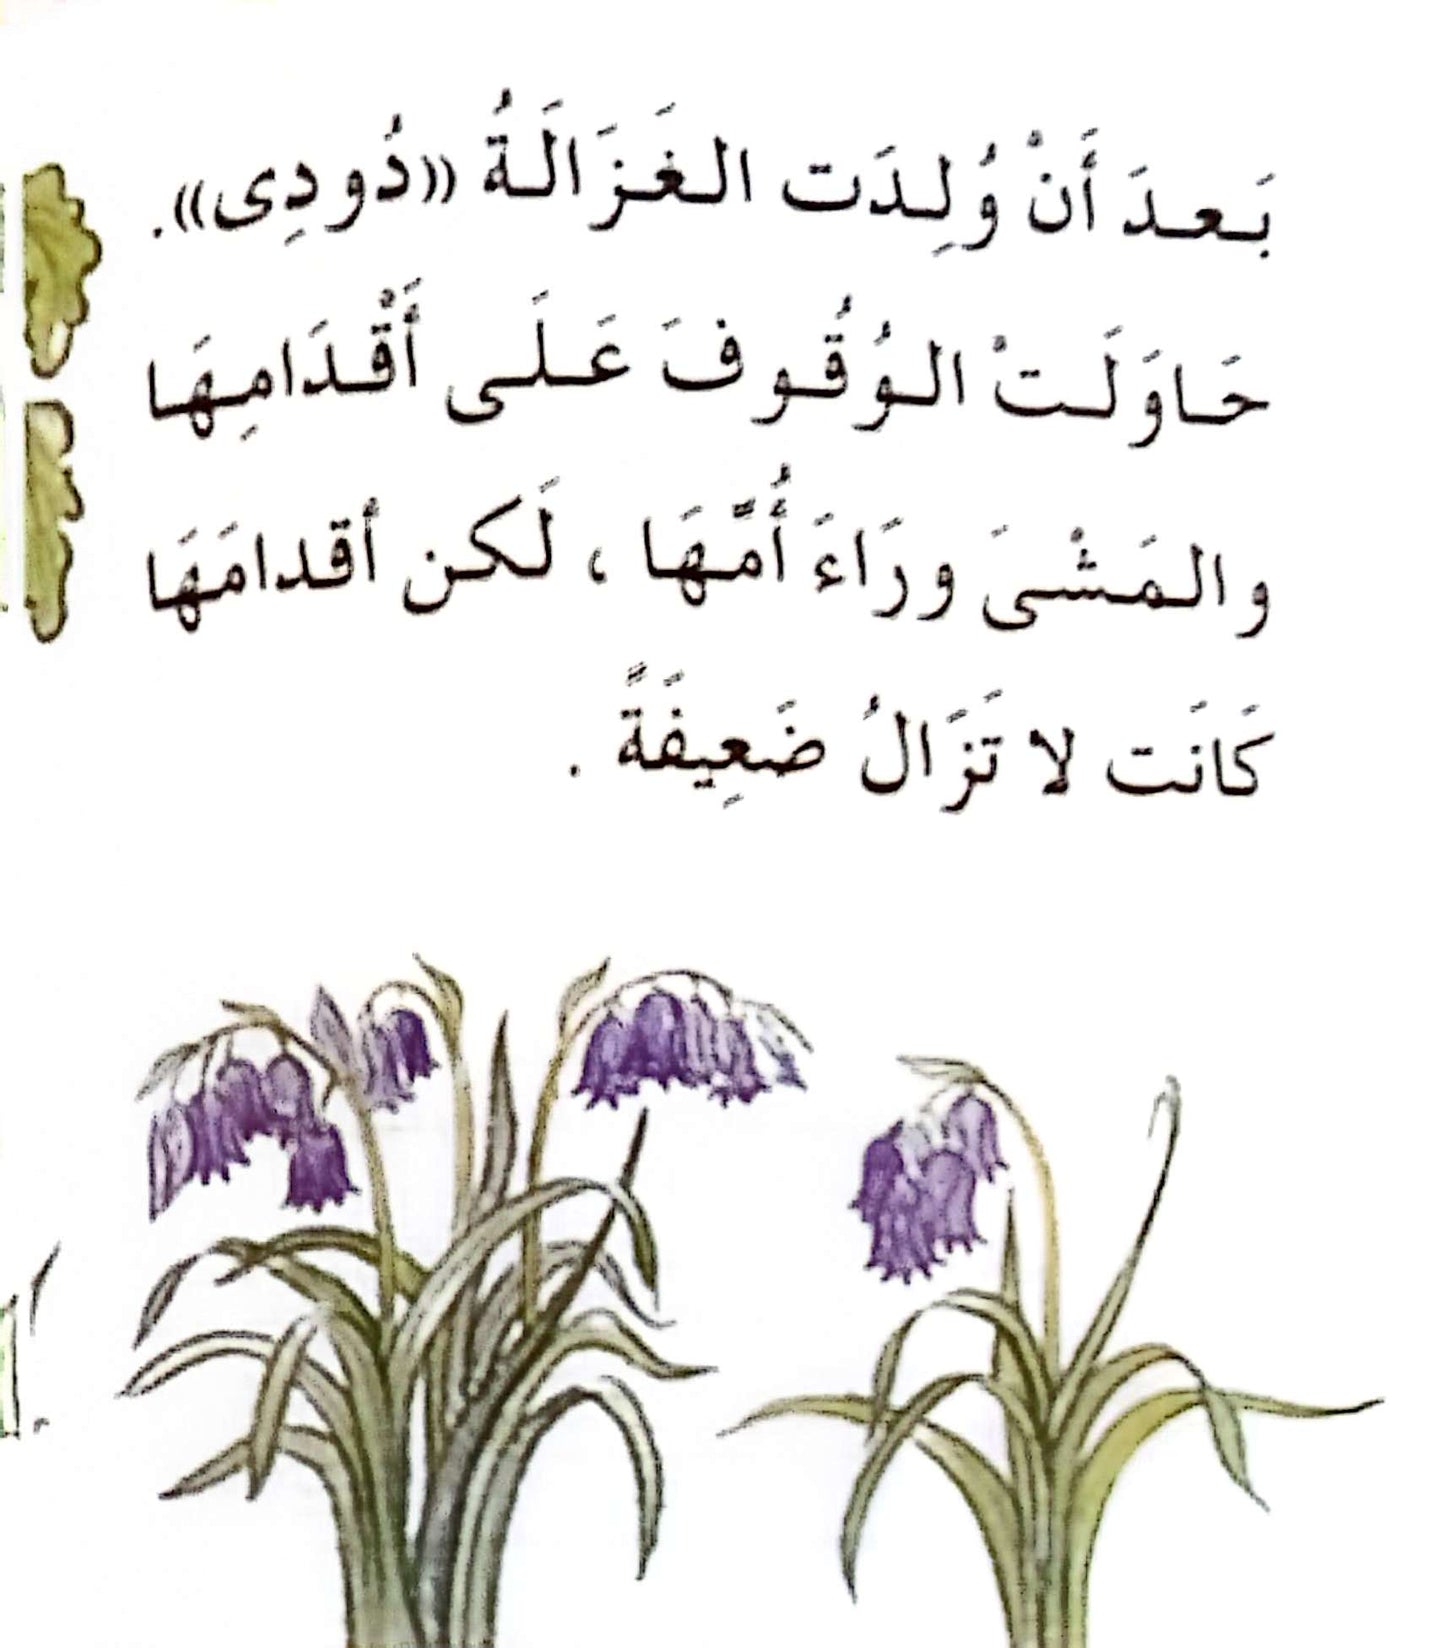 بَعدَ أَنْ وُلِدَت الغَزَالَةُ «دُودِى».
حَاوَلَتْ الوُقُوفَ عَلَى أَقْدَامِهَا
والمَشْىَ ورَاءَ أُمَّهَا ، لَكن أقدامَهَا
كَانَت لا تَزَالُ ضَعِيفَةً .